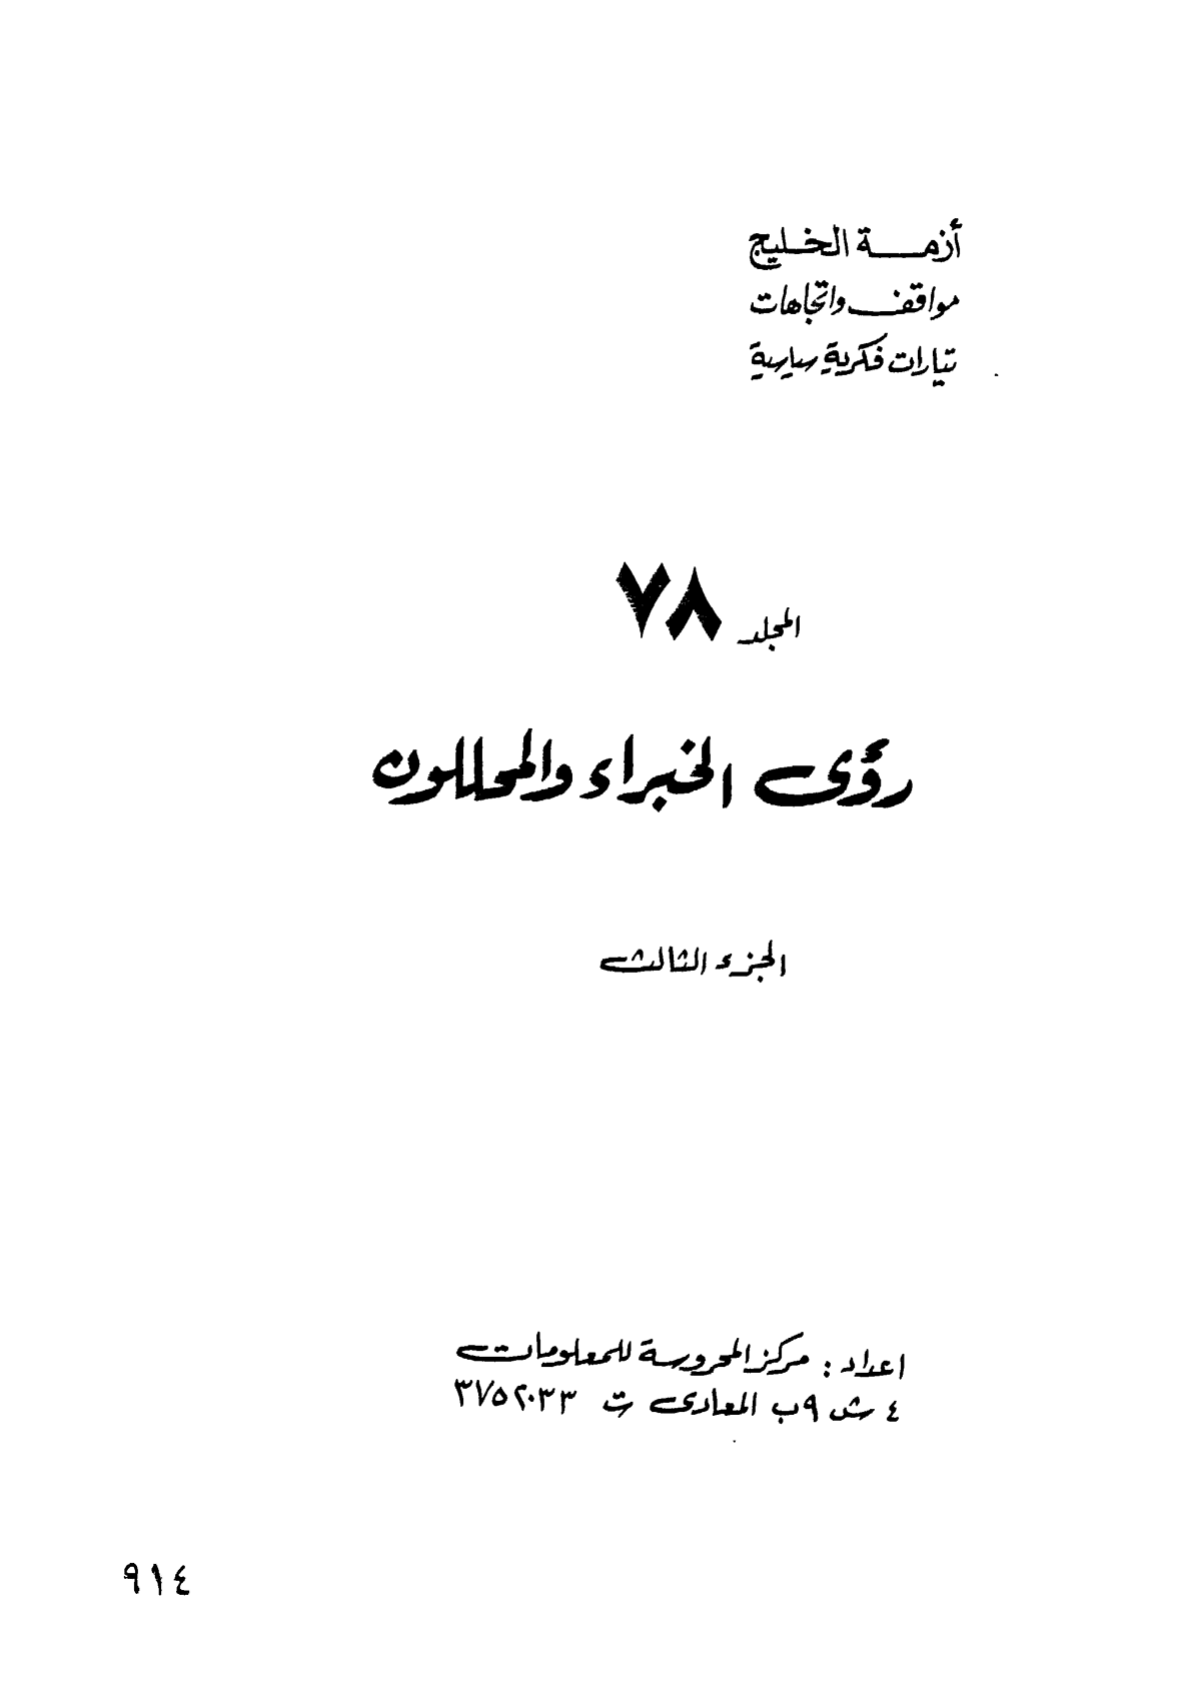 أزمـــة الخليج
مواقف واتجاهات
تيارات فكرية سياسية
المجلد ٧٨
رؤى الخبراء والمحللون
الجزء الثالث
اعداد : مركز المحروسة للمعلومات
٤ ش ٩ب المعادى ت ٣٧٥٢٠٣٣
٩١٤